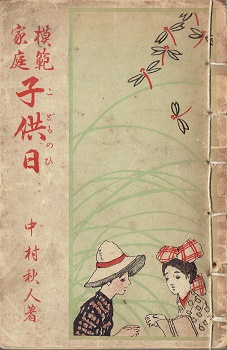 模範
家庭
子供日
こどものひ
中村秋人著